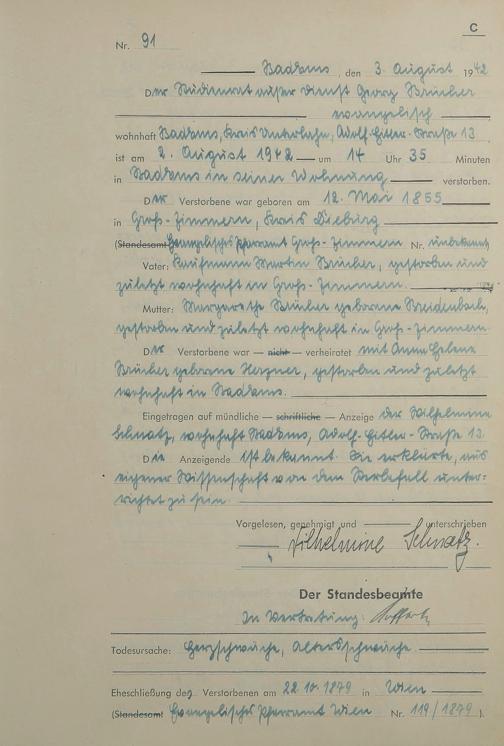 C
Nr. 91
Nassau, den 3. August 1942
Der Studienrat außer Dienst Georg Brücher
evangelisch
wohnhaft Nassau, Kreis Unterlahn, Adolf-Hitler-Straße 13
ist am 2. August 1942 um 14 Uhr 35 Minuten
in Nassau in seiner Wohnung verstorben.
Der Verstorbene war geboren am 12. Mai 1855
in Groß-Zimmern, Kreis Dieburg
(Standesamt Evangelisches Pfarramt Groß-Zimmern Nr. unbekannt
Vater: Kaufmann Martin Brücher, gestorben und
zuletzt wohnhaft in Groß-Zimmern.
Mutter: Margarethe Brücher geborene Breidenbach,
gestorben und zuletzt wohnhaft in Groß-Zimmern.
Der Verstorbene war — nicht — verheiratet mit Anna Helene
Brücher geborene Herzner, gestorben und zuletzt
wohnhaft in Nassau.
Eingetragen auf mündliche — schriftliche — Anzeige der Wilhelmine
Schnatz, wohnhaft Nassau, Adolf-Hitler-Straße 13.
Die Anzeigende ist bekannt. Sie erklärte, aus
eigener Wissenschaft von dem Sterbefall unter-
richtet zu sein.
Vorgelesen, genehmigt und unterschrieben
Wilhelmine Schnatz.
Der Standesbeamte
In Vertretung:
Todesursache: Herzschwäche, Altersschwäche
Eheschließung des Verstorbenen am 22.10.1879 in Wien
(Standesamt Evangelisches Pfarramt Wien Nr. 119/1879 ).